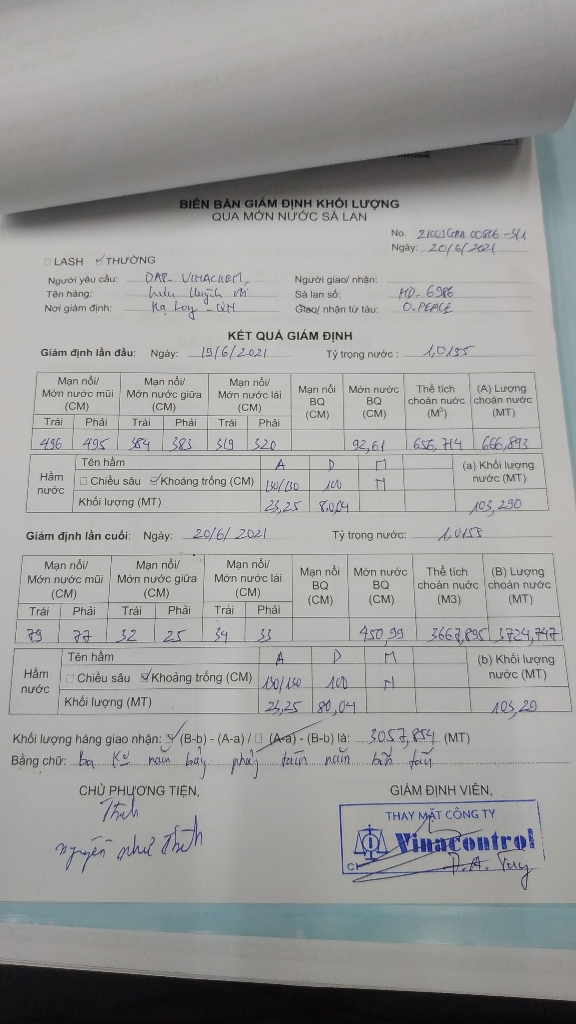 BIÊN BẢN GIÁM ĐỊNH KHỐI LƯỢNG
QUA MỚN NƯỚC SÀ LAN
No.
Ngày: 20/6/2021
□ LASH ✓ THƯỜNG
Người yêu cầu: DAP - VINACHEM Người giao/ nhận:
Tên hàng: lưu huỳnh Sà lan số: HD - 6986
Nơi giám định: Hạ Long - QN Giao/ nhận từ tàu: O.PEACE
KẾT QUẢ GIÁM ĐỊNH
Giám định lần đầu: Ngày: 19/6/2021 Tỷ trọng nước: 1,0155
Mạn nổi/ Mớn nước mũi (CM) Mạn nổi/ Mớn nước giữa (CM) Mạn nổi/ Mớn nước lái (CM) Mạn nổi BQ (CM) Mớn nước BQ (CM) Thể tích choán nước (M³) (A) Lượng choán nước (MT)
Trái Phải Trái Phải Trái Phải
496 495 384 383 319 320 92,61 656,714 666,893
Hầm nước Tên hầm A D M (a) Khối lượng nước (MT)
□ Chiều sâu ✓ Khoảng trống (CM) 130/130 100 M
Khối lượng (MT) 23,25 80,04 103,290
Giám định lần cuối: Ngày: 20/6/2021 Tỷ trọng nước: 1,0155
Mạn nổi/ Mớn nước mũi (CM) Mạn nổi/ Mớn nước giữa (CM) Mạn nổi/ Mớn nước lái (CM) Mạn nổi BQ (CM) Mớn nước BQ (CM) Thể tích choán nước (M3) (B) Lượng choán nước (MT)
Trái Phải Trái Phải Trái Phải
79 77 32 25 34 33 450,99 3667,895 3724,747
Hầm nước Tên hầm A D M (b) Khối lượng nước (MT)
□ Chiều sâu ✓ Khoảng trống (CM) 130/130 100 M
Khối lượng (MT) 23,25 80,04 103,29
Khối lượng hàng giao nhận: ✓ (B-b) - (A-a) / □ (A-a) - (B-b) là: 3057,854 (MT)
Bằng chữ: ba năm bảy phẩy tám năm bốn tấn
CHỦ PHƯƠNG TIỆN, GIÁM ĐỊNH VIÊN,
Thịnh THAY MẶT CÔNG TY
Nguyễn như Thịnh Vinacontrol